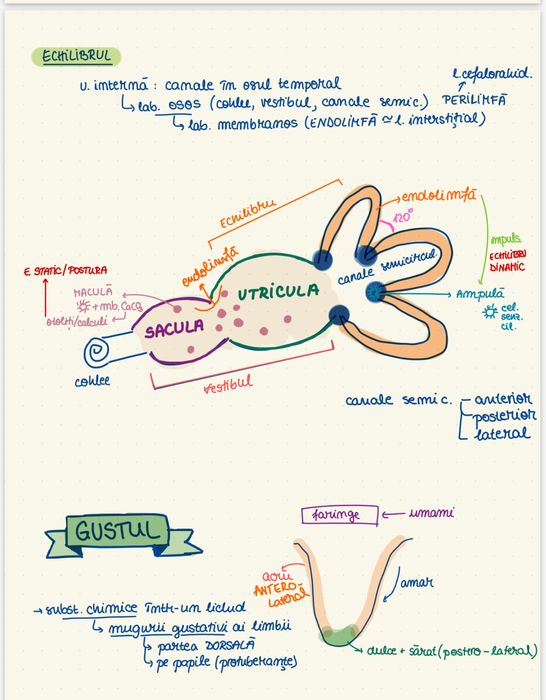 ECHILIBRUL
u. internă : canale în osul temporal
l. cefalorahid.
lab. osos (cohlee, vestibul, canale semic.) PERILIMFĂ
lab. membranos (ENDOLIMFĂ ≃ l. interstițial)
Echilibru
endolimfă
120°
impuls.
ECHILIBRU
DINAMIC
endolimfă
canale semicircul.
E STATIC/POSTURA
MACULĂ
+ mb. CaCO3
otoliți/calculi
UTRICULA
SACULA
Ampulă
cel.
senz.
cil.
cohlee
vestibul
canale semic. anterior
posterior
lateral
GUSTUL
faringe ← umami
acru
ANTERO-
lateral
amar
→ subst. chimice într-un lichid
mugurii gustativi ai limbii
partea DORSALĂ
pe papile (protuberanțe)
dulce + sărat (postero-lateral)